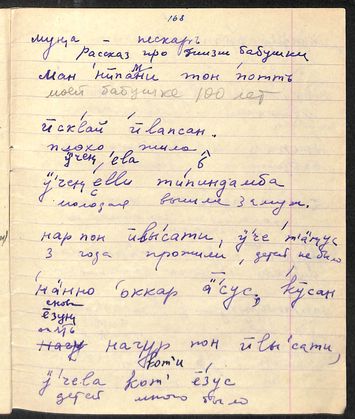 168
муңа — пескарь
Рассказ про жизнь бабушки
ман нипани тон потть
моей бабушке 100 лет
йсквай йвапсан.
плохо жила
ӱчең ева
ӱчең евви типиндамба
молодая вышла замуж.
нар пон йвысати, ӱче тӓңус
3 года прожили, детей не было
нанно оккар ӓсус, кӯсан
ёзуң
начур пон йвысати,
коти
ӱчева кот ёзус
детей много было